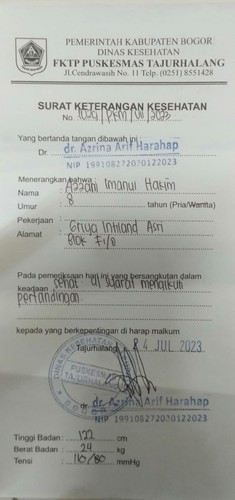 PEMERINTAH KABUPATEN BOGOR
DINAS KESEHATAN
FKTP PUSKESMAS TAJURHALANG
Jl.Cendrawasih No. 11 Telp. (0251) 8551428
SURAT KETERANGAN KESEHATAN
No. 1029/PKM/VII/2023
Yang bertanda tangan dibawah ini :
Dr. dr. Azrina Arif Harahap
NIP 199108272020122023
Menerangkan bahwa :
Nama : Azzani Imanul Hakim
Umur : 8 tahun (Pria/Wanita)
Pekerjaan :
Alamat : Griya Inkland Asri
Blok F1/8
Pada pemeriksaan hari ini yang bersangkutan dalam
keadaan sehat di syarat mengikuti
pertandingan
kepada yang berkepentingan di harap maklum
Tajurhalang, 24 JUL 2023
DINAS KESEHATAN
PUSKESMAS
TAJURHALANG
BOGOR
dr. Azrina Arif Harahap
NIP 199108272020122023
Tinggi Badan : 122 cm
Berat Badan : 24 kg
Tensi : 110/80 mmHg